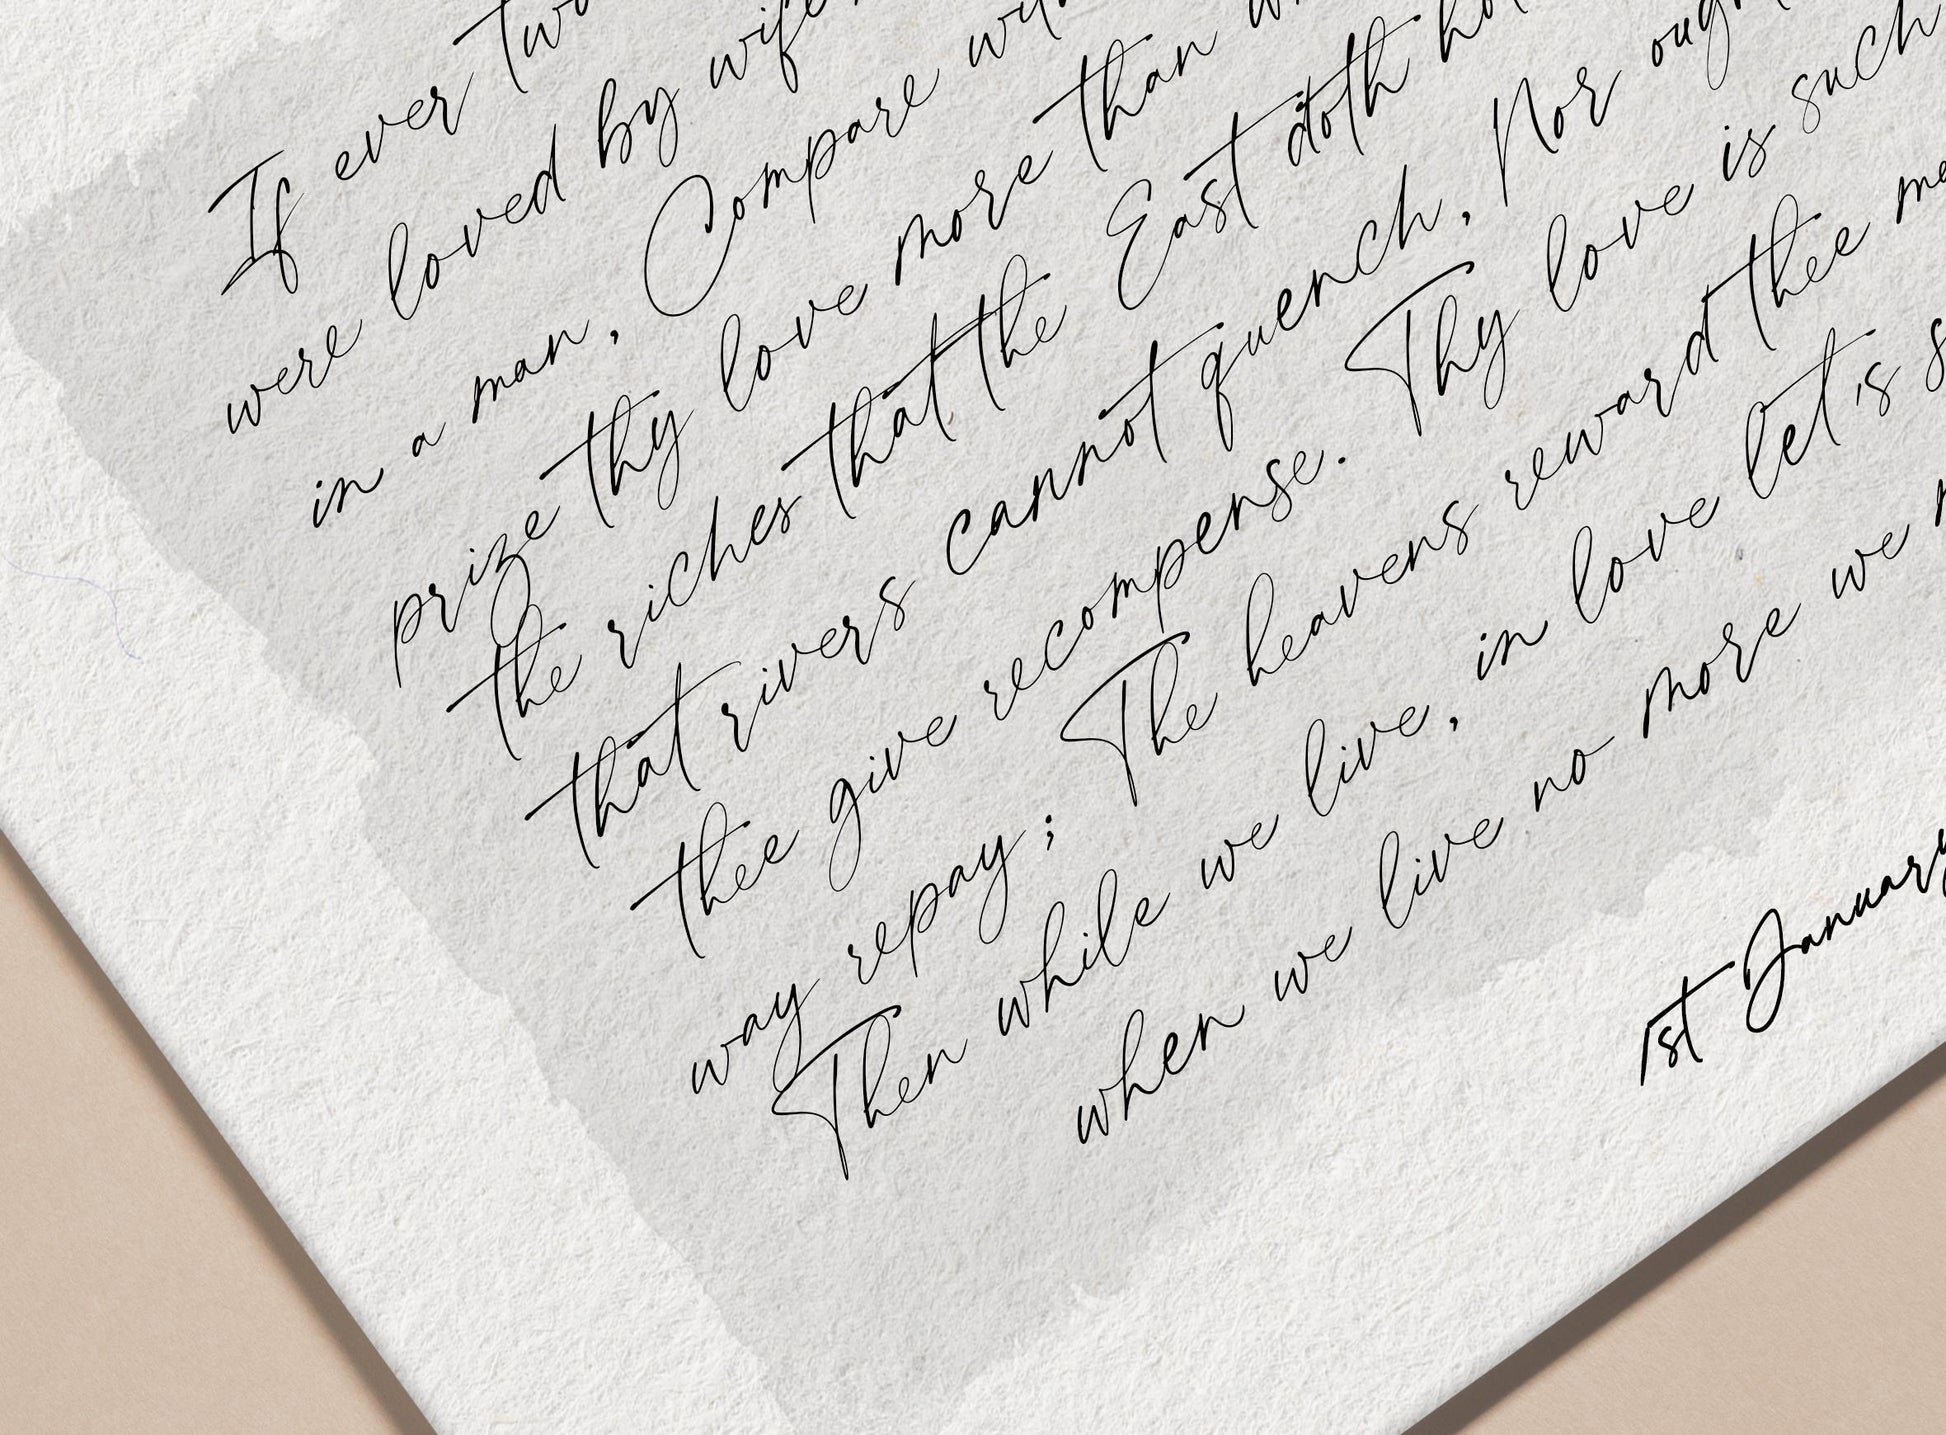 If ever two
were loved by wife,
in a man, Compare
prize thy love more than
the riches that the East doth
that rivers cannot quench, Nor
thee give recompense. Thy love is such
way repay; The heavens reward thee
Then while we live, in love let's
when we live no more we
1st January